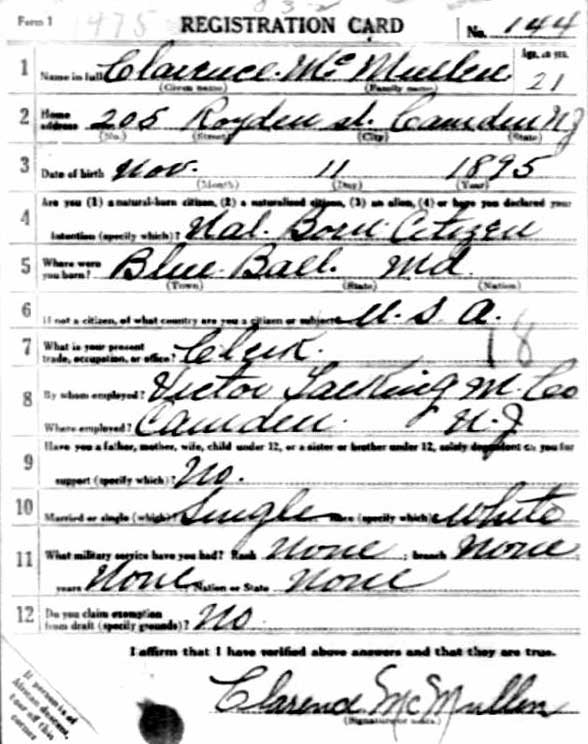 Form 1 1475 REGISTRATION CARD No. 144
1 Name in full Clarence Mc Mullen Age, in yrs. 21
(Given name) (Family name)
2 Home address 205 Royden st. Camden NJ
(No.) (Street) (City) (State)
3 Date of birth Nov. 11 1895
(Month) (Day) (Year)
4 Are you (1) a natural-born citizen, (2) a naturalized citizen, (3) an alien, (4) or have you declared your
intention (specify which)? Nat. Born Citizen
5 Where were you born? Blue Ball. Md.
(Town) (State) (Nation)
6 If not a citizen, of what country are you a citizen or subject? U. S. A.
7 What is your present trade, occupation, or office? Clerk. 18
8 By whom employed? Victor Talking M. Co
Where employed? Camden. N. J
9 Have you a father, mother, wife, child under 12, or a sister or brother under 12, solely dependent on you for
support (specify which)? No.
10 Married or single (which)? Single Race (specify which)? White
11 What military service have you had? Rank None ; branch None ;
years None ; Nation or State None
12 Do you claim exemption from draft (specify grounds)? No
I affirm that I have verified above answers and that they are true.
Clarence McMullen
(Signature or mark)
If person is of
African descent,
tear off this
corner